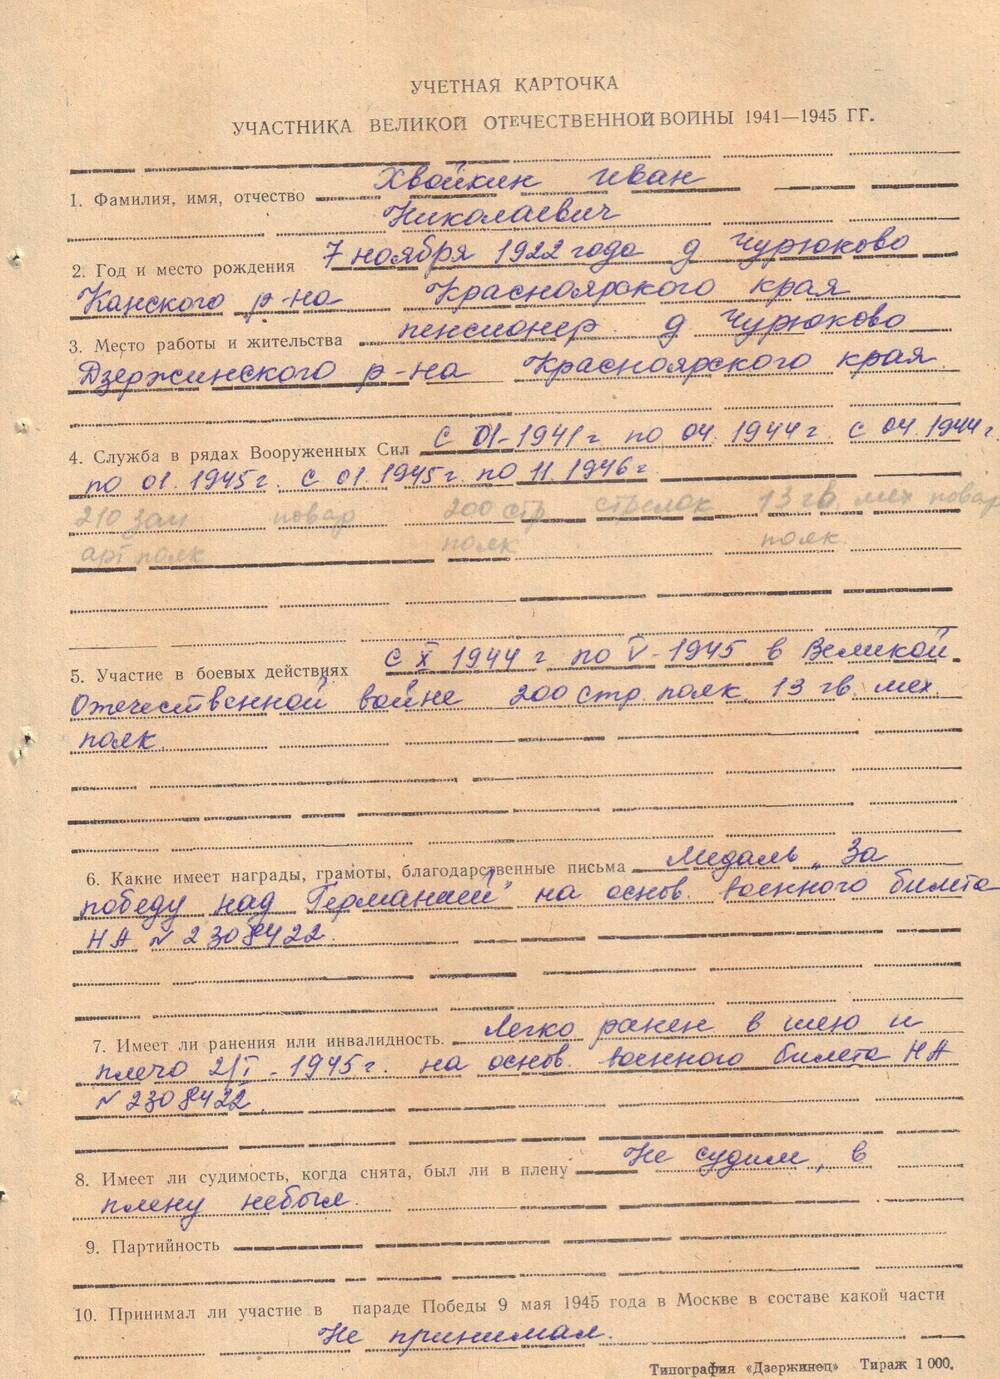 УЧЕТНАЯ КАРТОЧКА
УЧАСТНИКА ВЕЛИКОЙ ОТЕЧЕСТВЕННОЙ ВОЙНЫ 1941—1945 ГГ.
1. Фамилия, имя, отчество Хвойкин Иван
Николаевич
2. Год и место рождения 7 ноября 1922 года д Чурюково
Канского р-на Красноярского края
3. Место работы и жительства пенсионер д Чурюково
Дзержинского р-на Красноярского края
4. Служба в рядах Вооруженных Сил с 01-1941 г по 04.1944 г. с 04.1944 г.
по 01.1945 г. с 01.1945 г. по 11.1946 г.
210 зап повар 200 стр стрелок 13 гв. мех повар
арт полк полк полк.
5. Участие в боевых действиях с X 1944 г по V-1945 в Великой
Отечественной войне 200 стр. полк 13 гв. мех.
полк.
6. Какие имеет награды, грамоты, благодарственные письма Медаль „За
победу над Германией" на основ. военного билета
НА № 2308422.
7. Имеет ли ранения или инвалидность. Легко ранен в шею и
плечо 2/I-1945 г. на основ. военного билета НА
№ 2308422.
8. Имеет ли судимость, когда снята, был ли в плену Не судим, в
плену небыл.
9. Партийность
10. Принимал ли участие в параде Победы 9 мая 1945 года в Москве в составе какой части
Не принимал.
Типография «Дзержинец» Тираж 1 000.